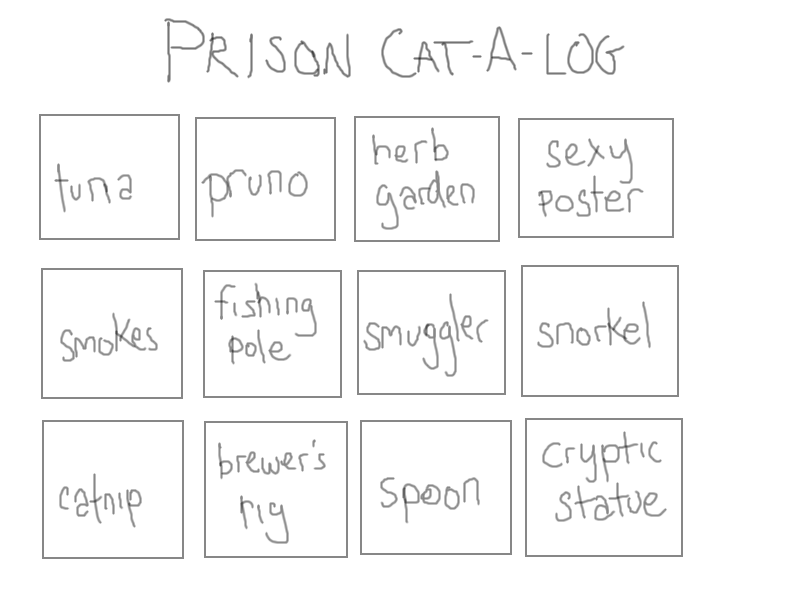 PRISON CAT-A-LOG
tuna
pruno
herb
garden
sexy
poster
smokes
fishing
pole
smuggler
snorkel
catnip
brewer's
rig
spoon
cryptic
statue